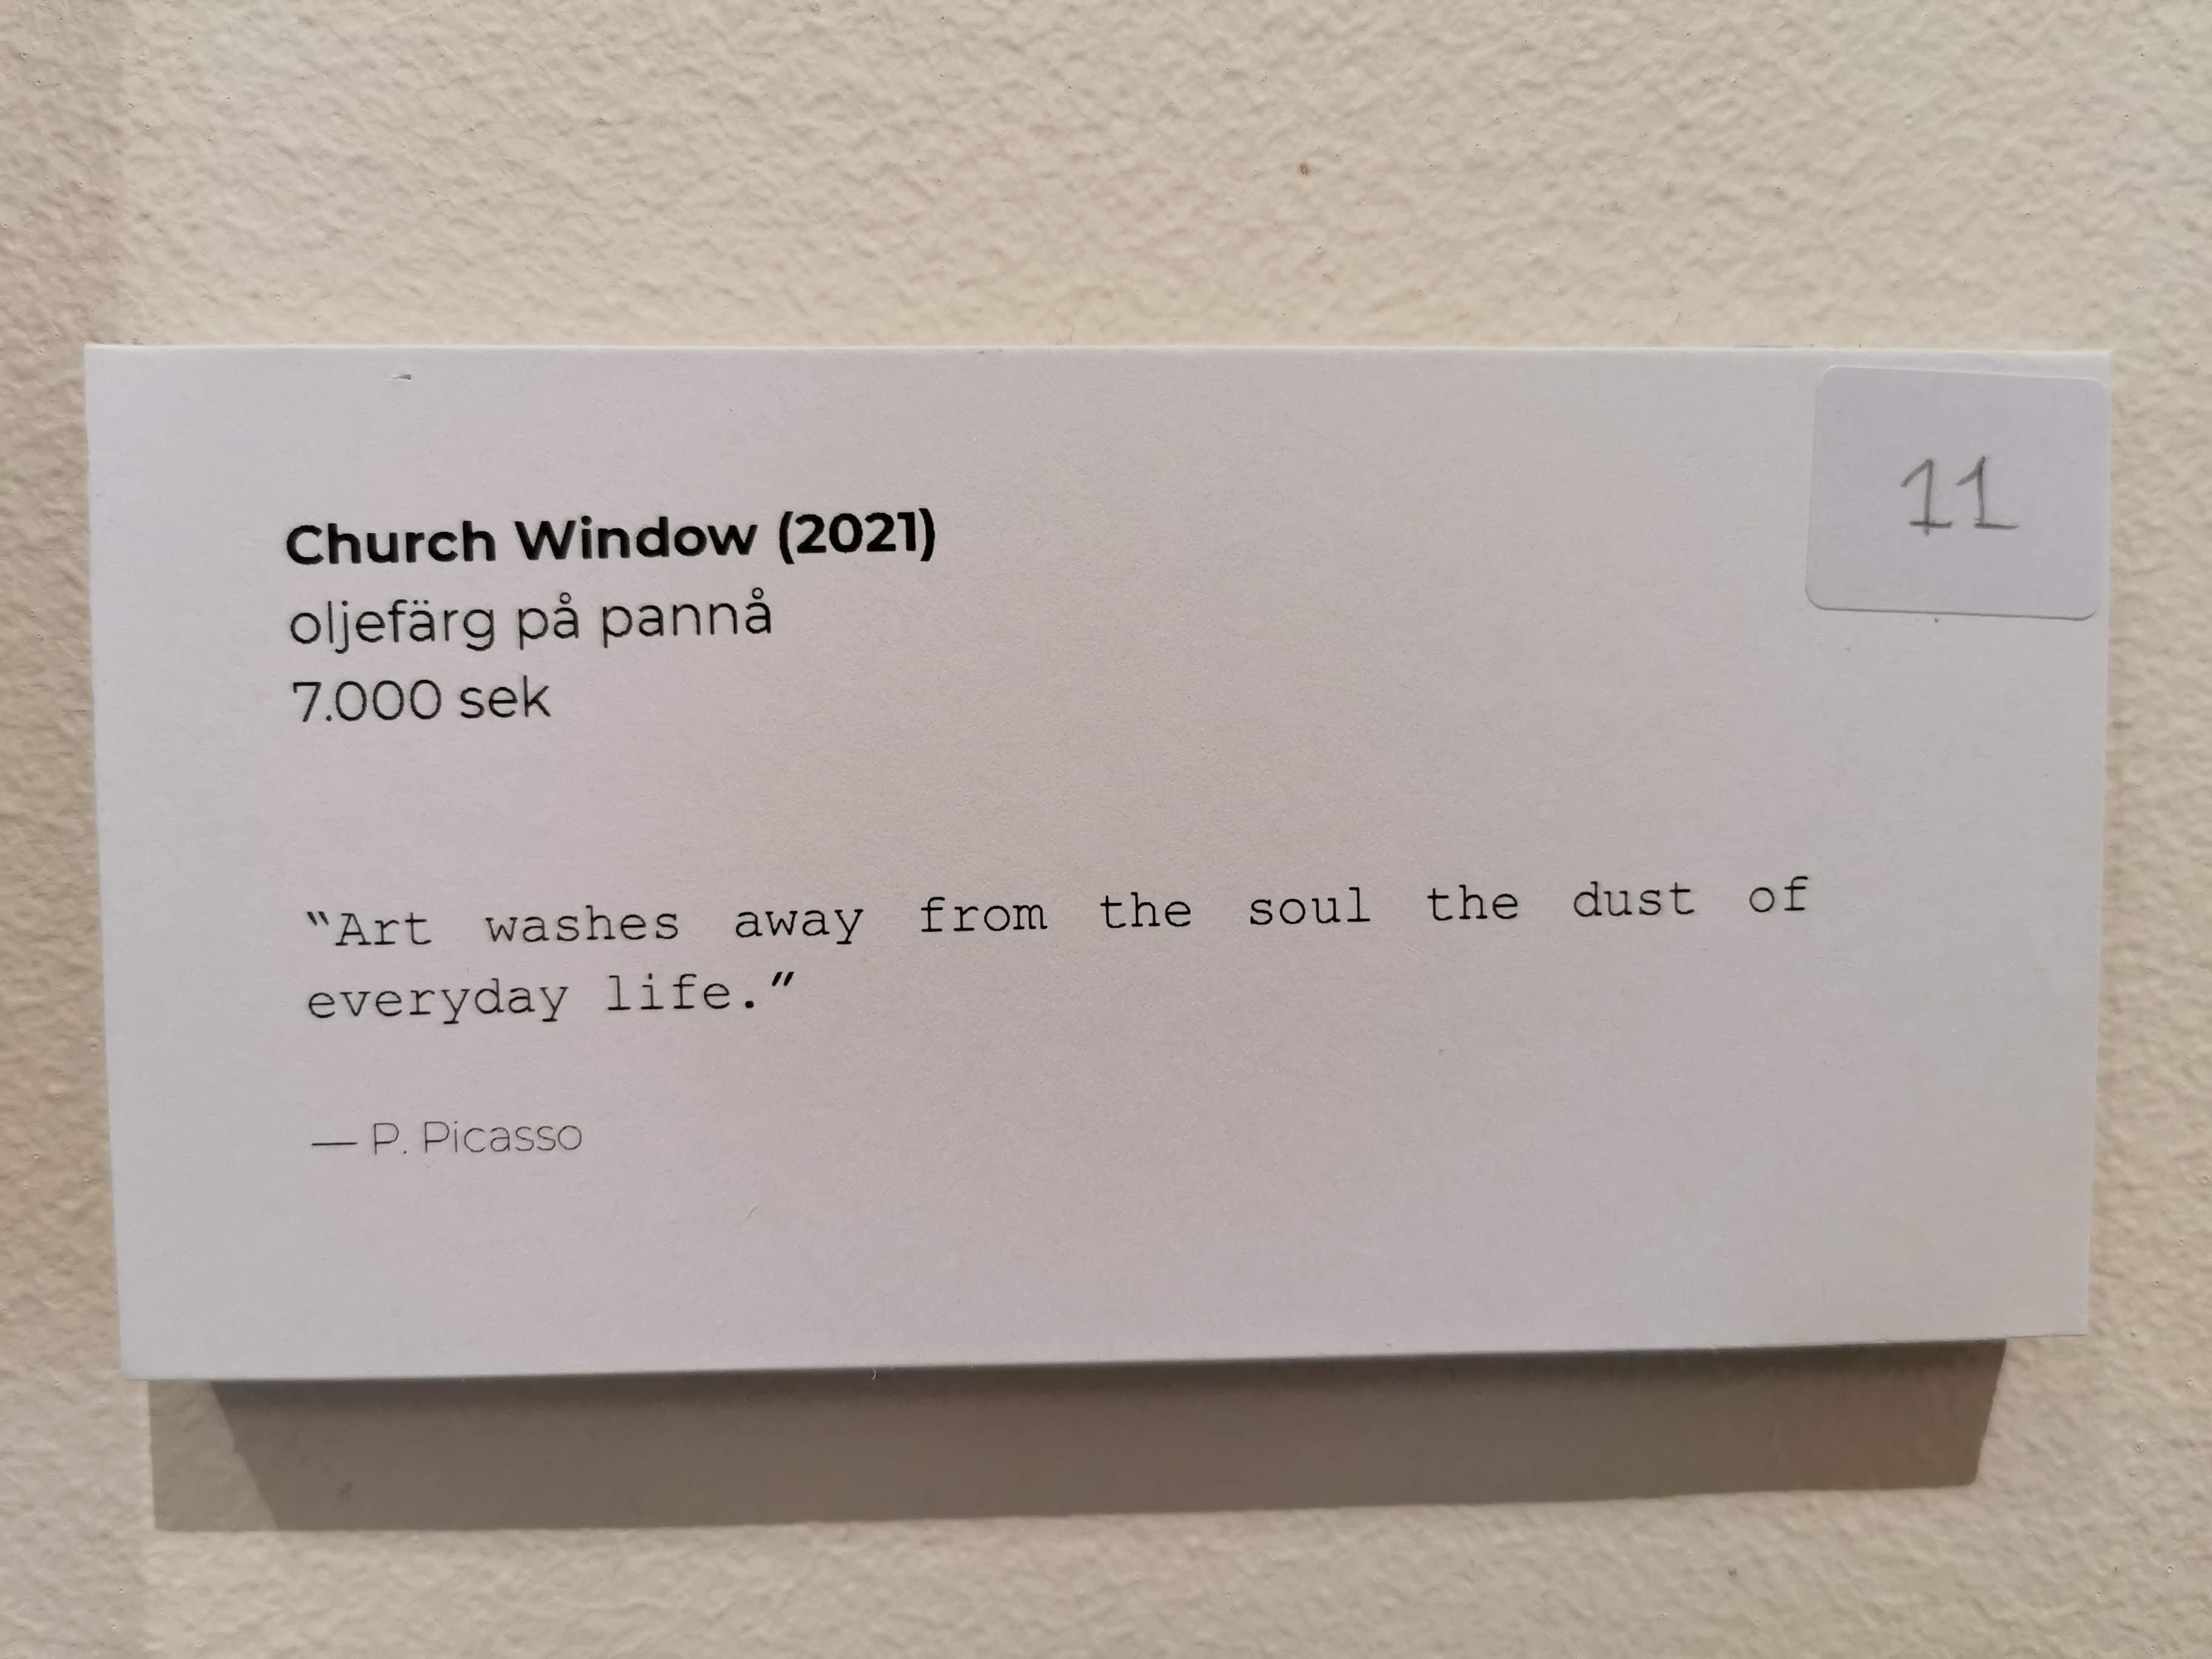 11
Church Window (2021)
oljefärg på pannå
7.000 sek
"Art washes away from the soul the dust of
everyday life."
— P. Picasso